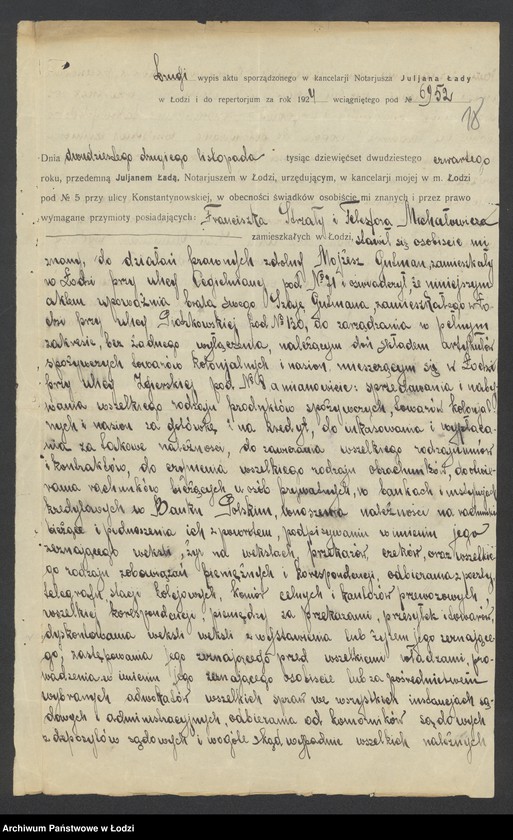 Drugi wypis aktu sporządzonego w kancelarji Notarjusza Juljana Łady
w Łodzi i do repertorjum za rok 1924 wciągniętego pod № 6952
18
Dnia dwudziestego drugiego listopada tysiąc dziewięćset dwudziestego czwartego
roku, przedemną Juljanem Ładą, Notarjuszem w Łodzi, urzędującym, w kancelarji mojej w m. Łodzi
pod № 5 przy ulicy Konstantynowskiej, w obecności świadków osobiście mi znanych i przez prawo
wymagane przymioty posiadających: Franciszka Strzały i Telesfora Michałowicza
zamieszkałych w Łodzi, stawił się osobiście mi
znany, do działań prawnych zdolny Mojżesz Gutman, zamieszkały
w Łodzi przy ulicy Cegielnianej pod № 21 i oświadczył że niniejszym
aktem upoważnia brata swego Szaję Gutmana, zamieszkałego w Ło-
dzi przy ulicy Piotrkowskiej pod № 120, do zarządzania w pełnym
zakresie, bez żadnego wyłączenia, należącym doń składem artykułów
spożywczych towarów kolonjalnych i nasion mieszczącym się w Łodzi
przy ulicy Zgierskiej pod № a mianowicie: sprzedawania i naby-
wania wszelkiego rodzaju produktów spożywczych, towarów kolonjal-
nych i nasion za gotówkę i na kredyt, do inkasowania i wypłaca-
nia za takowe należności, do zawierania wszelkiego rodzaju umów
i kontraktów, do czynienia wszelkiego rodzaju obrachunków, do otwie-
rania rachunków bieżących u osób prywatnych, w bankach i instytucjach
kredytowych w Banku Polskim, wnoszenia należności na rachunki
bieżące i podnoszenia ich z powrotem, podpisywania w imieniu jego
zeznającego weksli, żyr na wekslach, przekazów, czeków, oraz wszelkie-
go rodzaju zobowiązań pieniężnych i korespondencji, odbierania z poczty,
telegrafu, stacji kolejowych, komór celnych i kantorów przewozowych,
wszelkiej korespondencji, pieniędzy za przekazami, przesyłek i towarów,
dyskontowania weksli z wystawienia lub żyrem jego zeznające-
go, zastępowania jego zeznającego przed wszelkiemi władzami, pro-
wadzenia w imieniu jego zeznającego osobiście lub za pośrednictwem
wybranych adwokatów wszelkich spraw we wszystkich instancjach są-
dowych i administracyjnych, odbierania od komorników sądowych
z depozytów sądowych i wogóle skąd wypadnie wszelkich należnych
Archiwum Państwowe w Łodzi